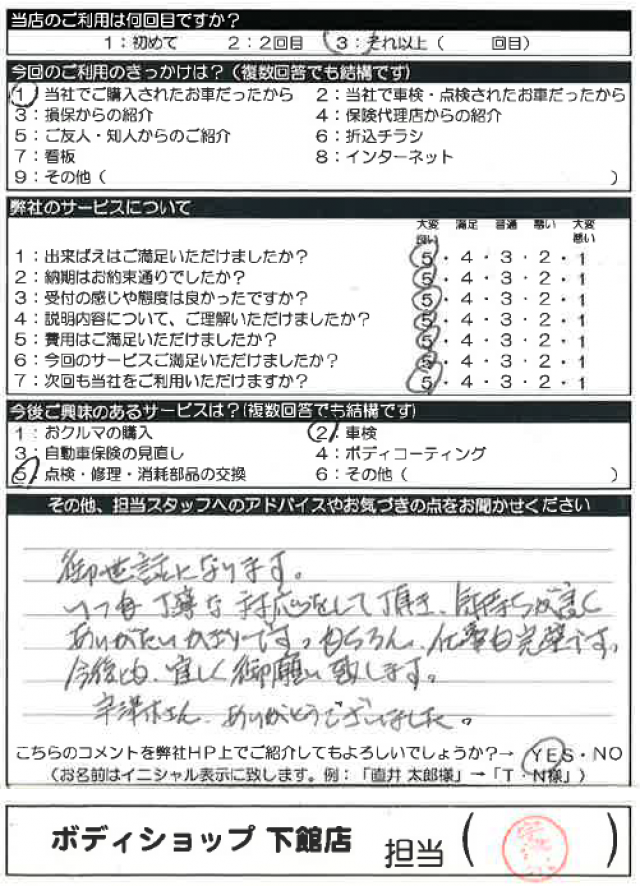 当店のご利用は何回目ですか？
1：初めて 2：2回目 3：それ以上（ 回目）
今回のご利用のきっかけは？（複数回答でも結構です）
1：当社でご購入されたお車だったから 2：当社で車検・点検されたお車だったから
3：損保からの紹介 4：保険代理店からの紹介
5：ご友人・知人からのご紹介 6：折込チラシ
7：看板 8：インターネット
9：その他（ ）
弊社のサービスについて
大変良い 満足 普通 悪い 大変悪い
1：出来ばえはご満足いただけましたか？ 5・4・3・2・1
2：納期はお約束通りでしたか？ 5・4・3・2・1
3：受付の感じや態度は良かったですか？ 5・4・3・2・1
4：説明内容について、ご理解いただけましたか？ 5・4・3・2・1
5：費用はご満足いただけましたか？ 5・4・3・2・1
6：今回のサービスご満足いただけましたか？ 5・4・3・2・1
7：次回も当社をご利用いただけますか？ 5・4・3・2・1
今後ご興味のあるサービスは？（複数回答でも結構です）
1：おクルマの購入 2：車検
3：自動車保険の見直し 4：ボディコーティング
5：点検・修理・消耗部品の交換 6：その他（ ）
その他、担当スタッフへのアドバイスやお気づきの点をお聞かせください
御世話になります。
いつも丁寧な対応をして頂き、気持ちが良く
ありがたいかぎりです。もちろん、仕事も完璧です。
今後とも、宜しく御願い致します。
宇津木さん、ありがとうございました。
こちらのコメントを弊社HP上でご紹介してもよろしいでしょうか？→ YES・NO
（お名前はイニシャル表示に致します。例：「直井 太郎様」→「T・N様」）
ボディショップ 下館店 担当（ ）